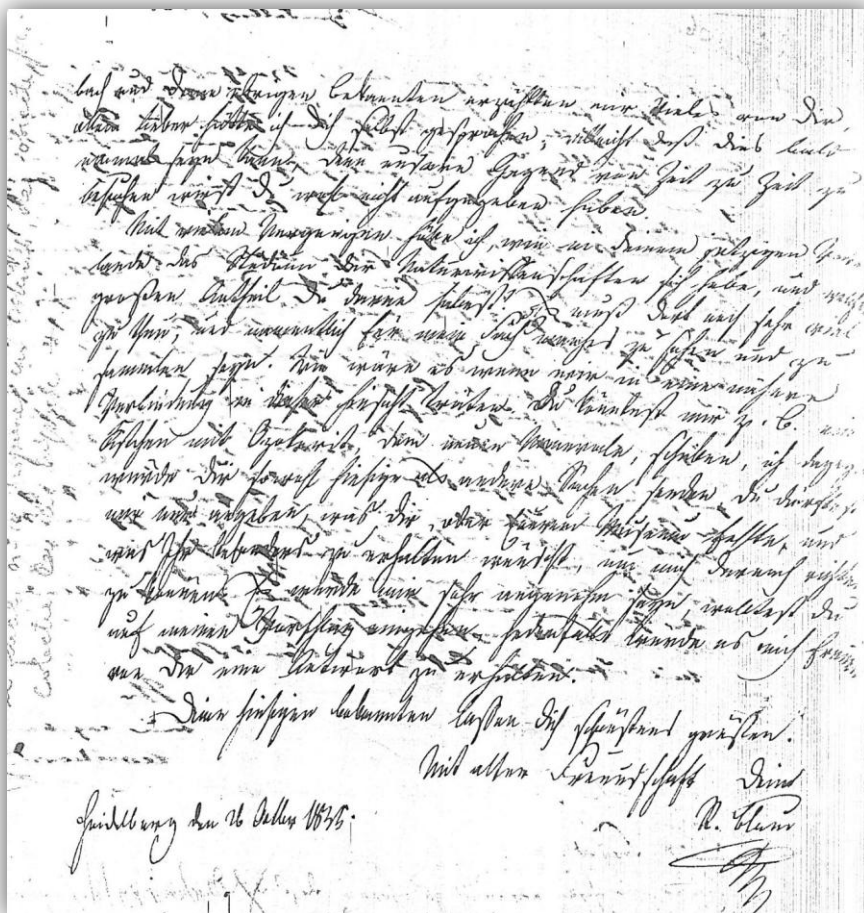 bach und Deine übrigen bekannten erzählten mir Vieles von Dir,
allein lieber hätte ich Dich selbst gesprochen; vielleicht daß dies bald
einmal seyn kann, denn unsere Gegend von Zeit zu Zeit zu
besuchen wirst Du wohl nicht aufgegeben haben.
Mit vielem Vergnügen habe ich, wie in Deinem jetzigen
lande das Studium der Naturwissenschaften sich hebe, und
großen Antheil Du daran habest. Es muß dort noch sehr viel
zu thun, und namentlich für mein Fach manches zu sehen und zu
sammlen seyn. Wie wäre es wenn wir in eine nähere
Verbindung in dieser Hinsicht träten. Du könntest mir z. B. ein
Kistchen mit Ozokerit, dem neuen Minerale, schicken, ich dagegen
würde Dir sowohl hiesige als andere Sachen senden. Du dürftest
mir nur angeben, was Dir, oder Eurem Museum fehlte, und
was Ihr besonders zu erhalten wünscht, um mich darnach richten
zu können. Es würde mir sehr angenehm seyn, wolltest Du
auf meinen Vorschlag eingehen, jedenfalls würde es mich freuen,
von Dir eine Antwort zu erhalten.
Deine hiesigen bekannten lassen Dich schönstens grüßen.
Mit alter Freundschaft Dein
R. Blum
Heidelberg den 26 1835.